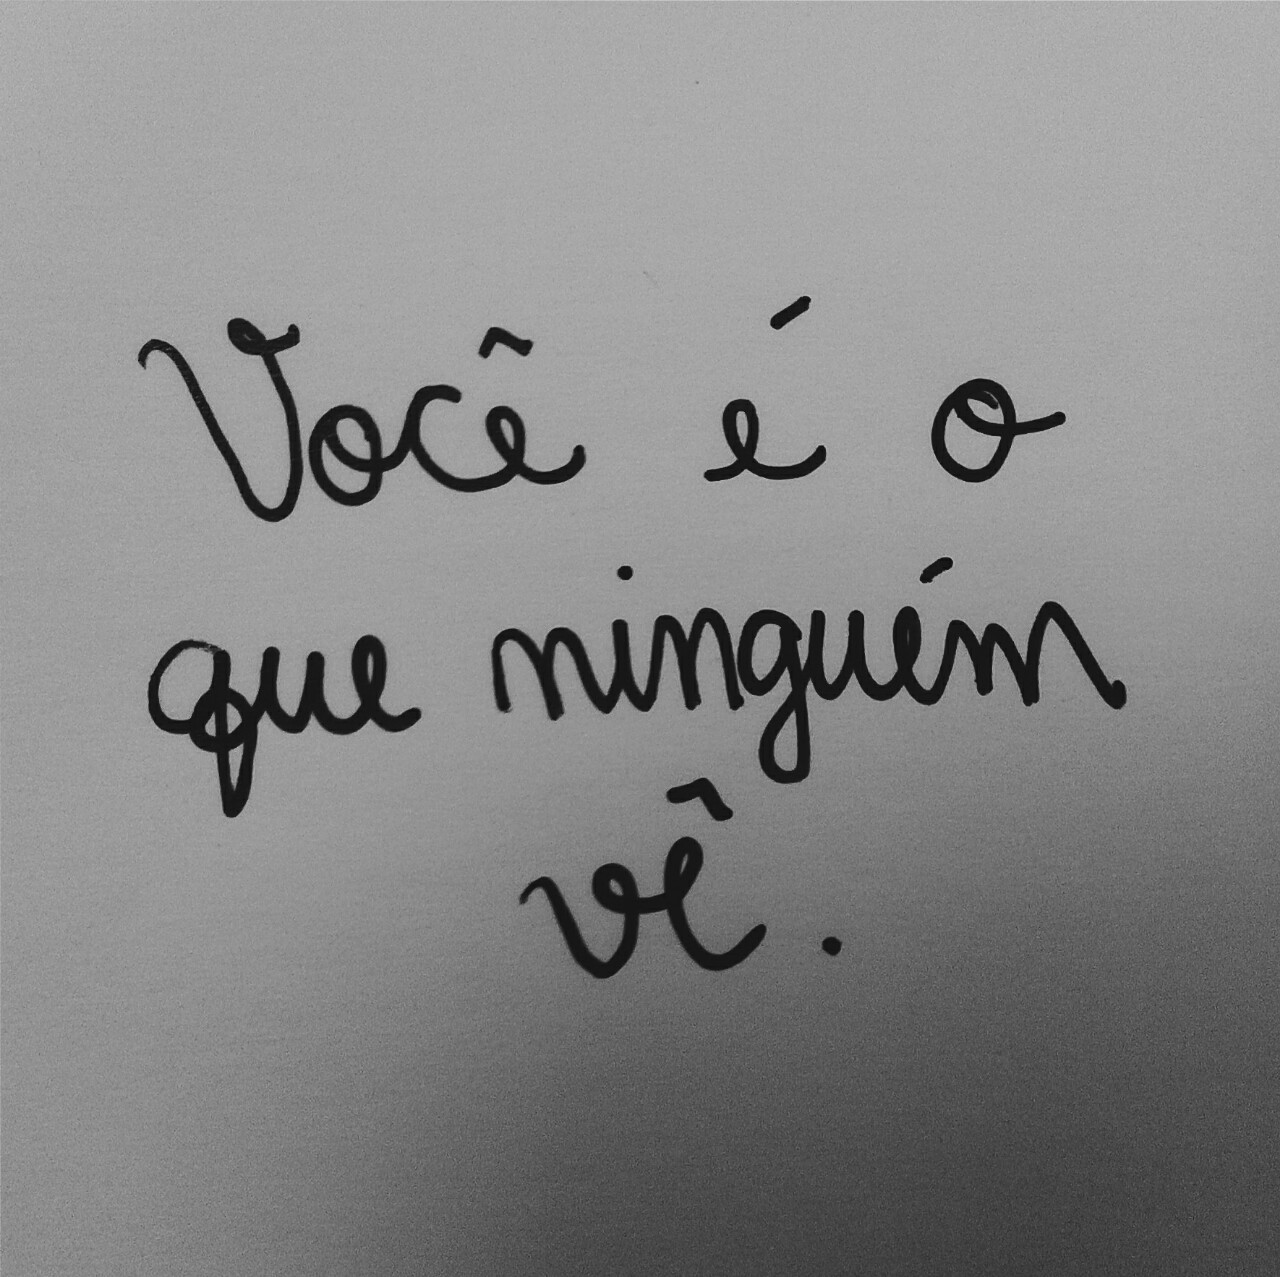 Você é o
que ninguém
vê.